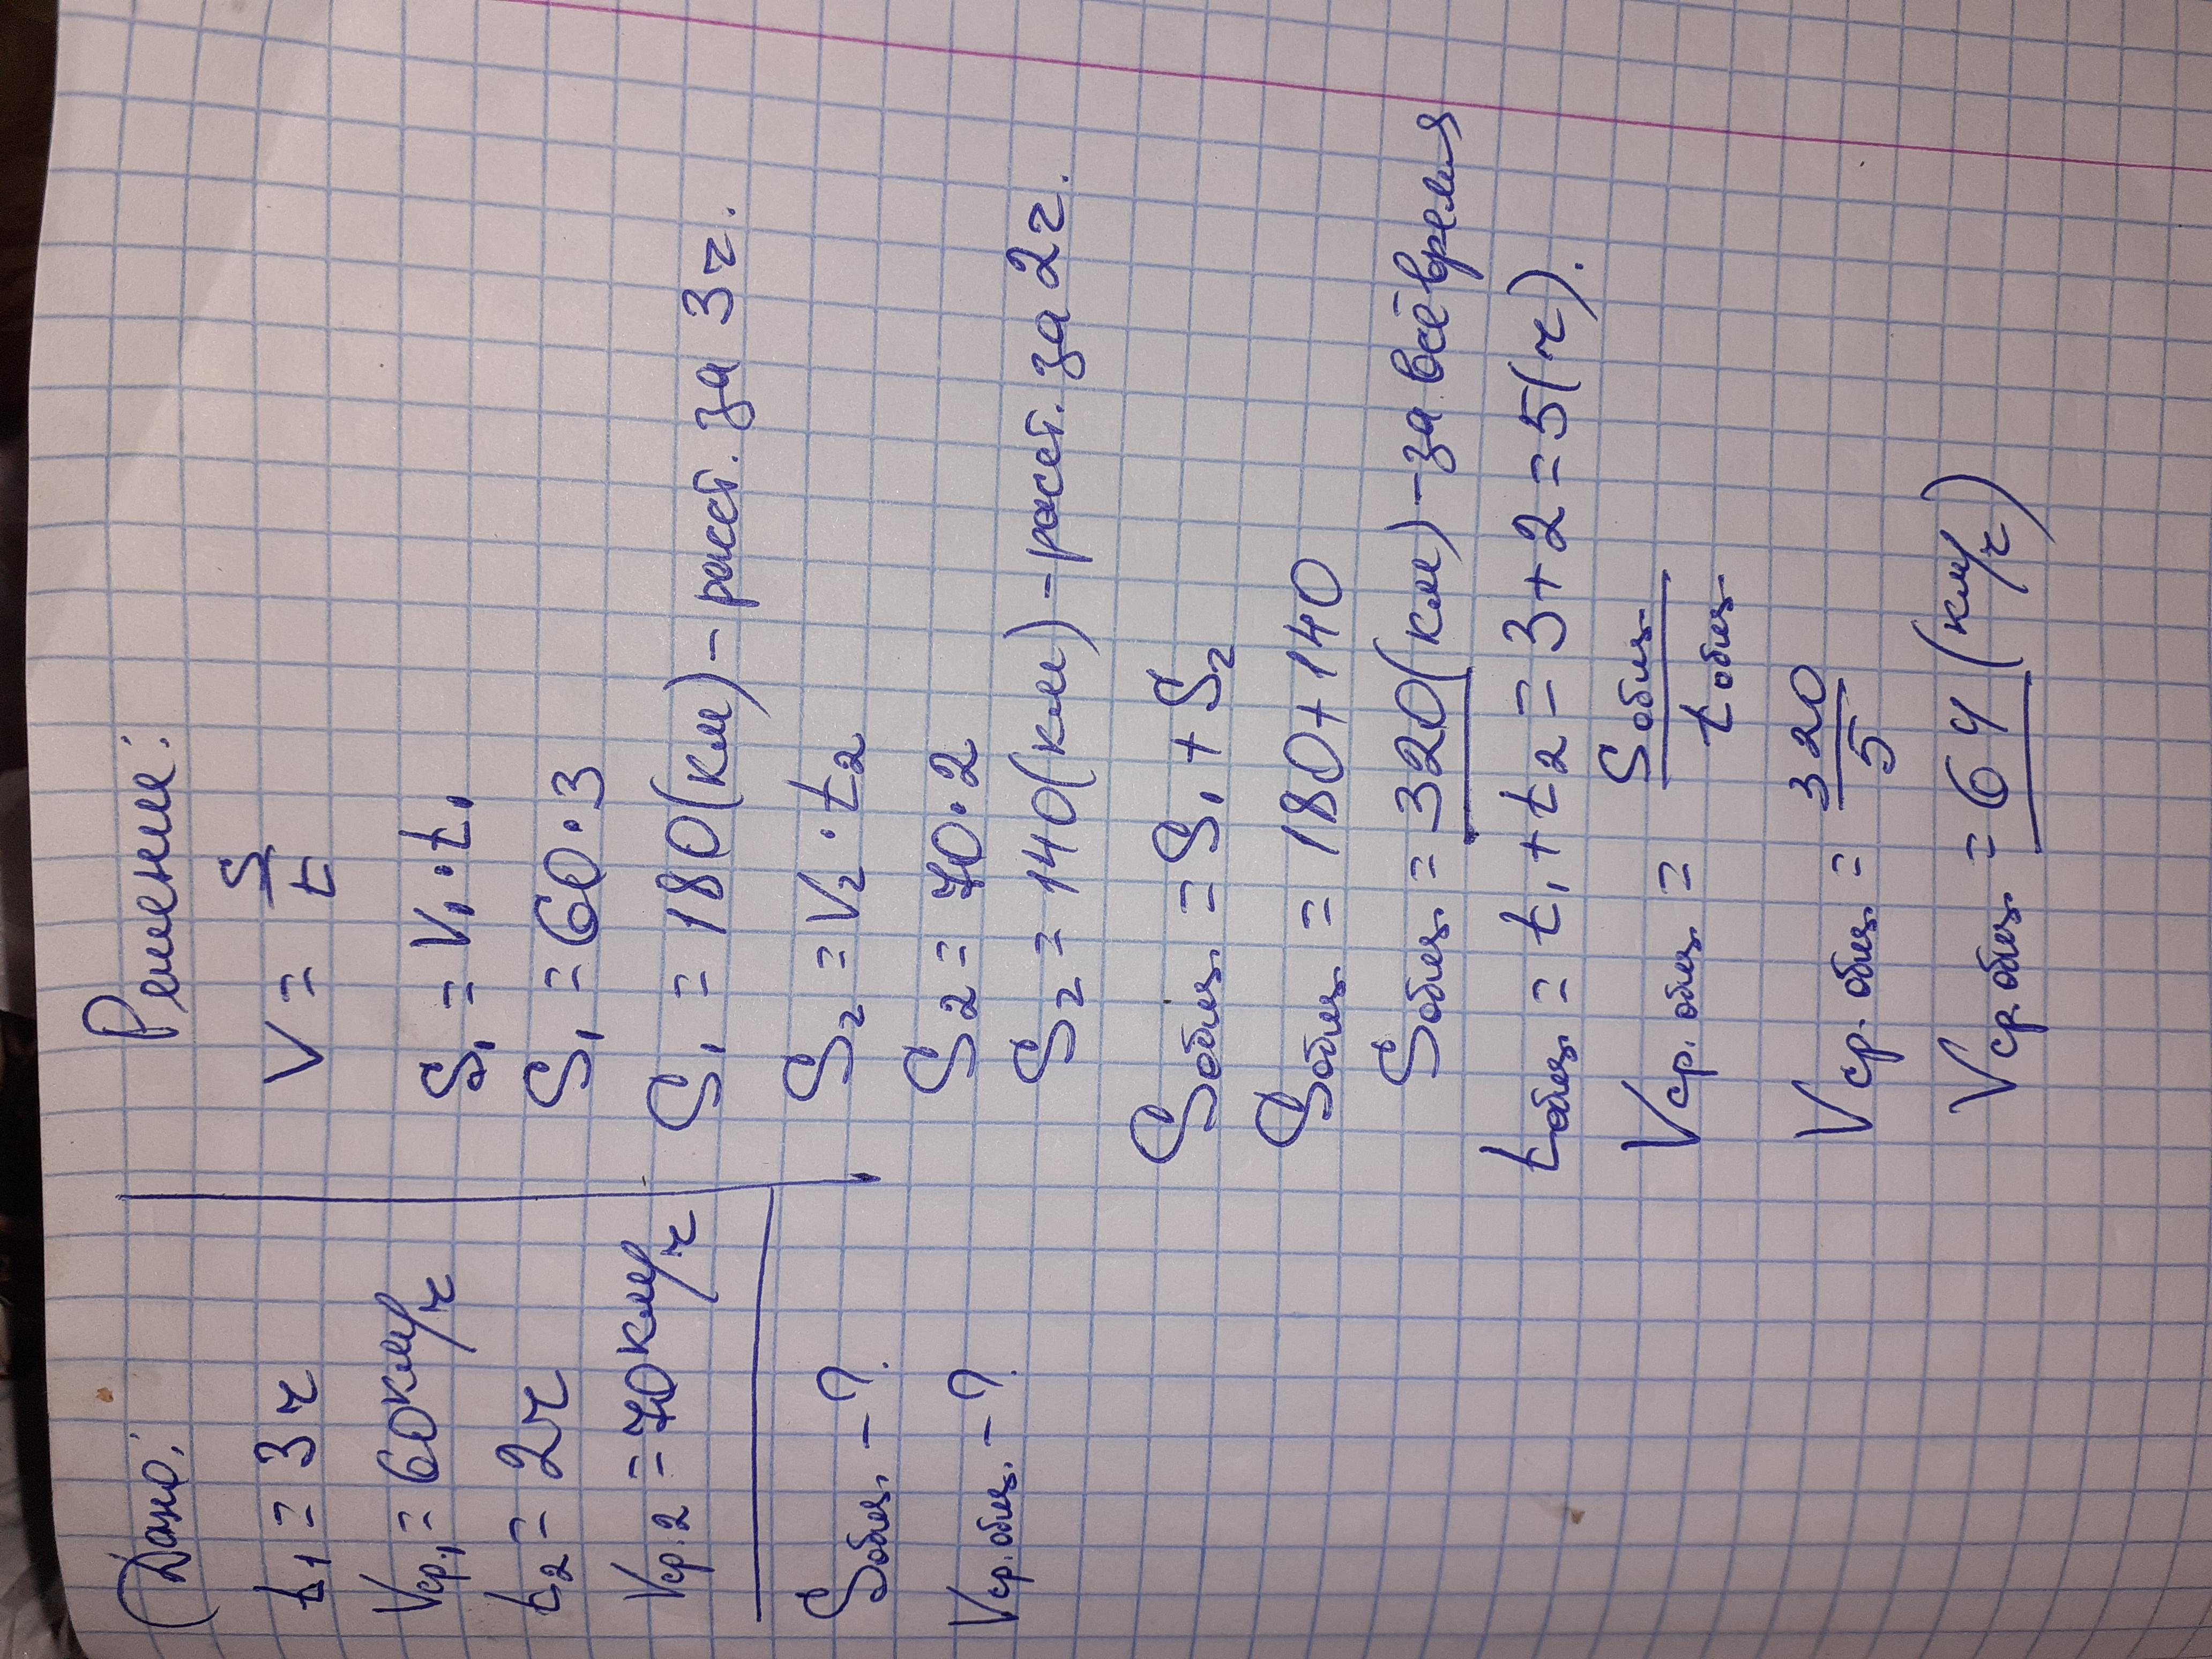 Дано:
t₁ = 3ч
Vср₁ = 60км/ч
t₂ = 2ч
Vср.₂ = 70км/ч
Sобщ. – ?
Vср.общ. – ?
Решение:
V = S/t
S₁ = V₁·t₁
S₁ = 60·3
S₁ = 180(км) – расст. за 3ч.
S₂ = V₂·t₂
S₂ = 70·2
S₂ = 140(км) – расст. за 2ч.
Sобщ. = S₁ + S₂
Sобщ. = 180+140
Sобщ. = 320(км) – за всё время
tобщ. = t₁ + t₂ = 3+2 = 5(ч).
Vср.общ. = Sобщ./tобщ.
Vср.общ. = 320/5
Vср.общ. = 64 (км/ч)